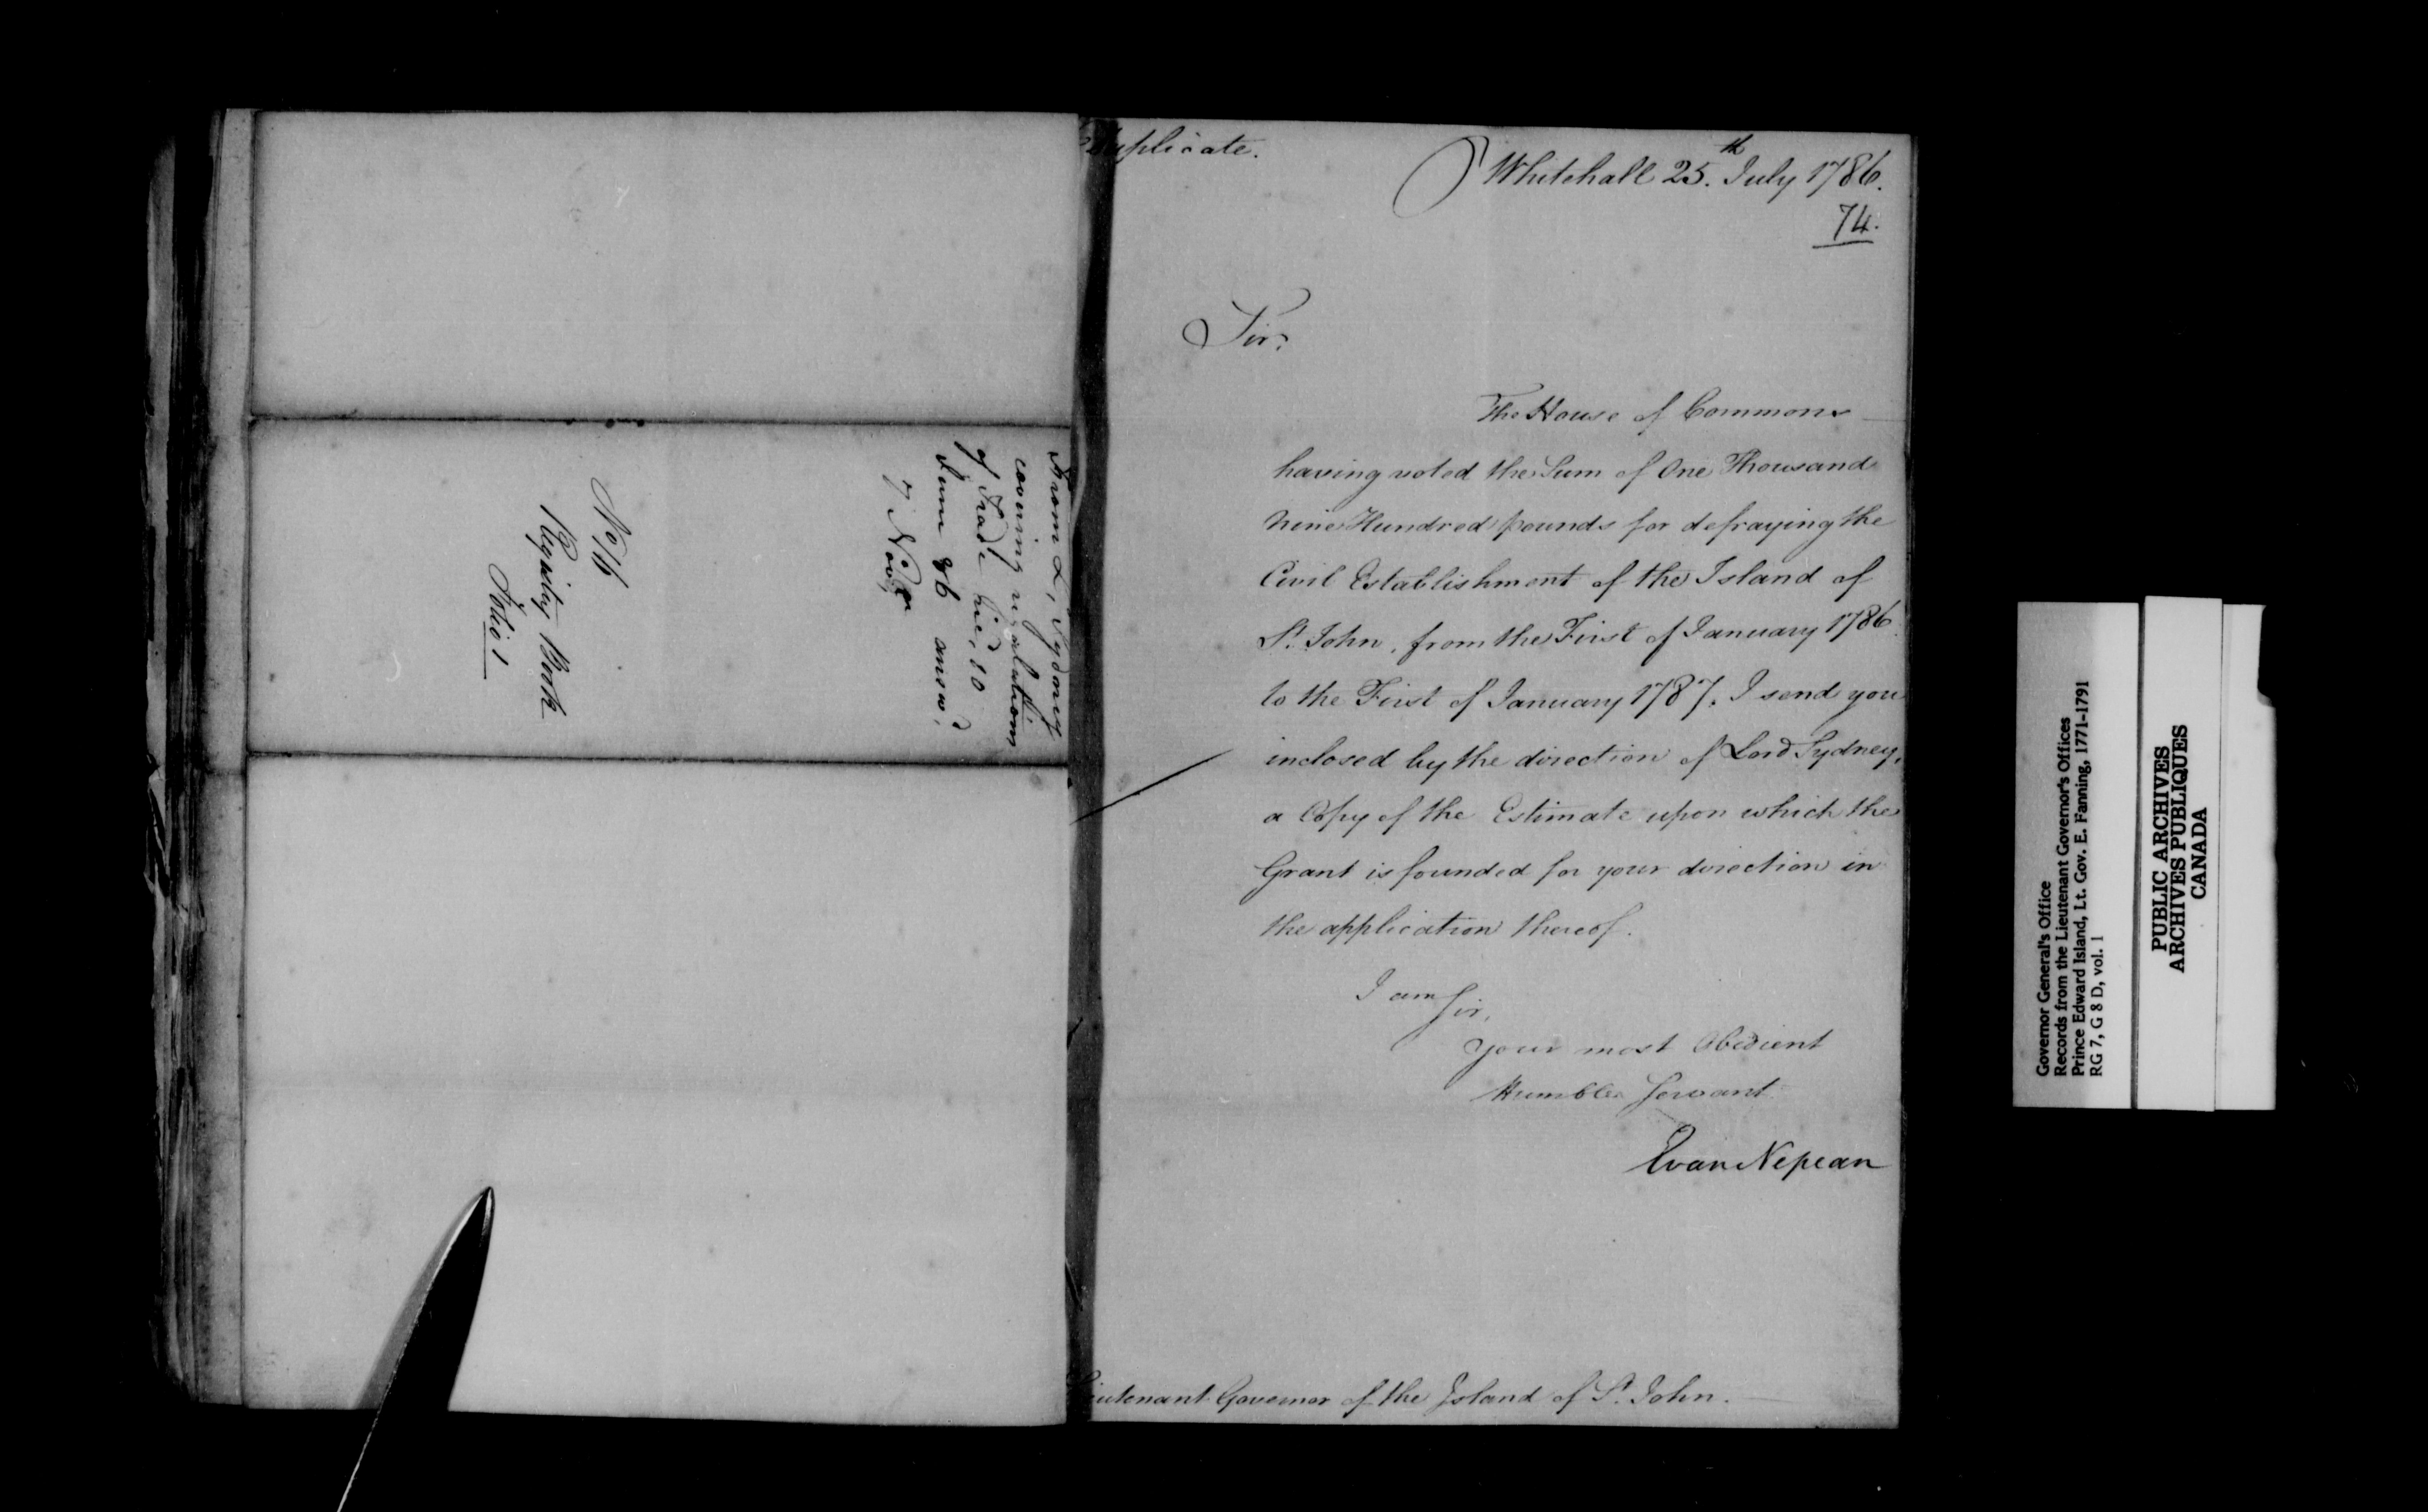 From Ld. Sydney
covering regulations
of Trade rec'd. 10
June 86 answd.
7 Novr
No 16
Registry Book
Folio 1
Duplicate.
Whitehall 25.th July 1786.
74.
Sir,
The House of Commons
having voted the Sum of One Thousand
Nine Hundred pounds for defraying the
Civil Establishment of the Island of
St. John, from the First of January 1786
to the First of January 1787, I send you
inclosed by the direction of Lord Sydney,
a Copy of the Estimate upon which the
Grant is founded for your direction in
the application thereof.
I am Sir,
Your most Obedient
Humble Servant
Evan Nepean
Lieutenant Governor of the Island of St. John.
Governor General's Office
Records from the Lieutenant Governor's Offices
Prince Edward Island, Lt. Gov. E. Fanning, 1771-1791
RG 7, G 8 D, vol. 1
PUBLIC ARCHIVES
ARCHIVES PUBLIQUES
CANADA